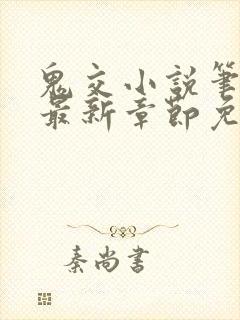 鬼交小説筆
最新章節免
秦尚書